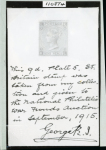 This 9d. Plate 5, Gt.
Britain stamp was
taken from my collec-
tion and given to
the National Philatelic
War Fund Auction
in September, 1915.
George R. I.